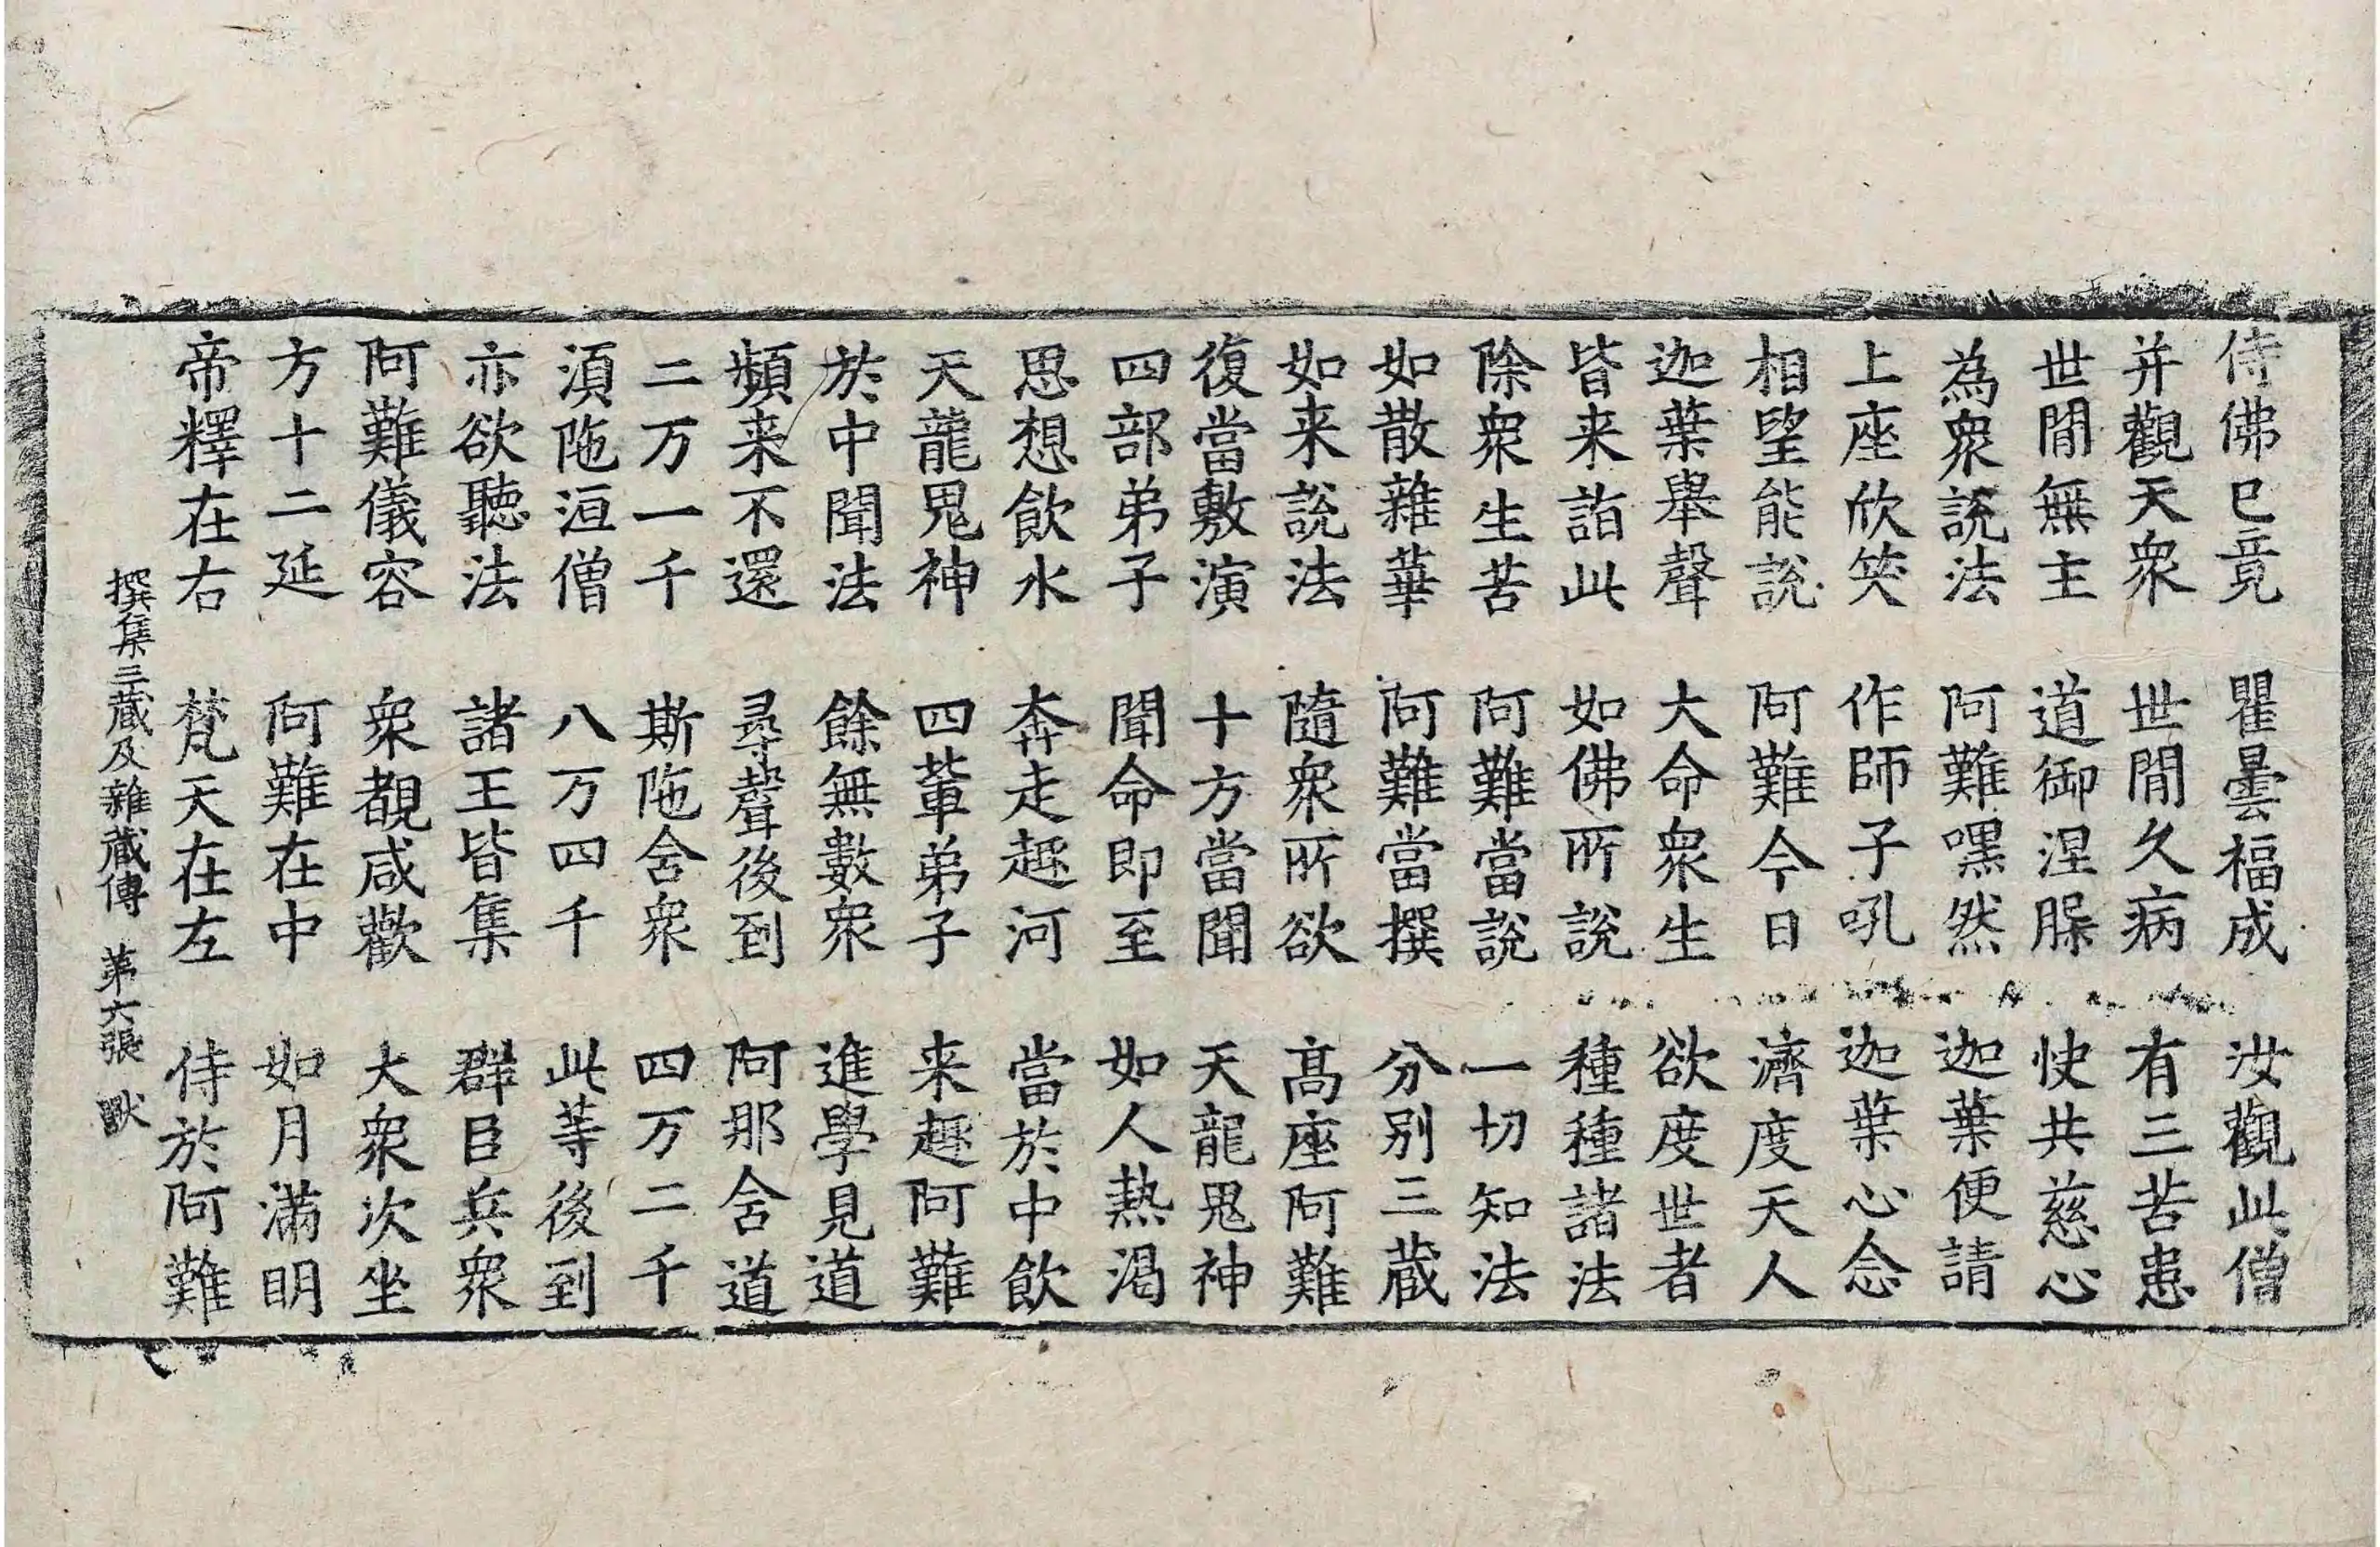 侍佛已竟 瞿曇福成 汝觀此僧
并觀天衆 世閒久病 有三苦患
世閒無主 道御涅脲 快共慈心
為衆說法 阿難嘿然 迦葉便請
上座欣笑 作師子吼 迦葉心念
相望能說 阿難今日 濟度天人
迦葉舉聲 大命衆生 欲度世者
皆来詣此 如佛所說 種種諸法
除衆生苦 阿難當說 一切知法
如散雜華 阿難當撰 分別三藏
如来說法 隨衆所欲 髙座阿難
復當敷演 十方當聞 天龍鬼神
四部弟子 聞命即至 如人熱渴
思想飲水 奔走趣河 當於中飲
天龍鬼神 四輩弟子 来趣阿難
於中聞法 餘無數衆 進學見道
頻来不還 尋聲後到 阿那舍道
二万一千 斯陁舍衆 四万二千
湏陁洹僧 八万四千 此等後到
亦欲聽法 諸王皆集 群臣兵衆
阿難儀容 衆覩咸歡 大衆次坐
方十二延 阿難在中 如月滿明
帝釋在右 梵天在左 侍於阿難
撰集三藏及雜藏傳 苐六張 獸